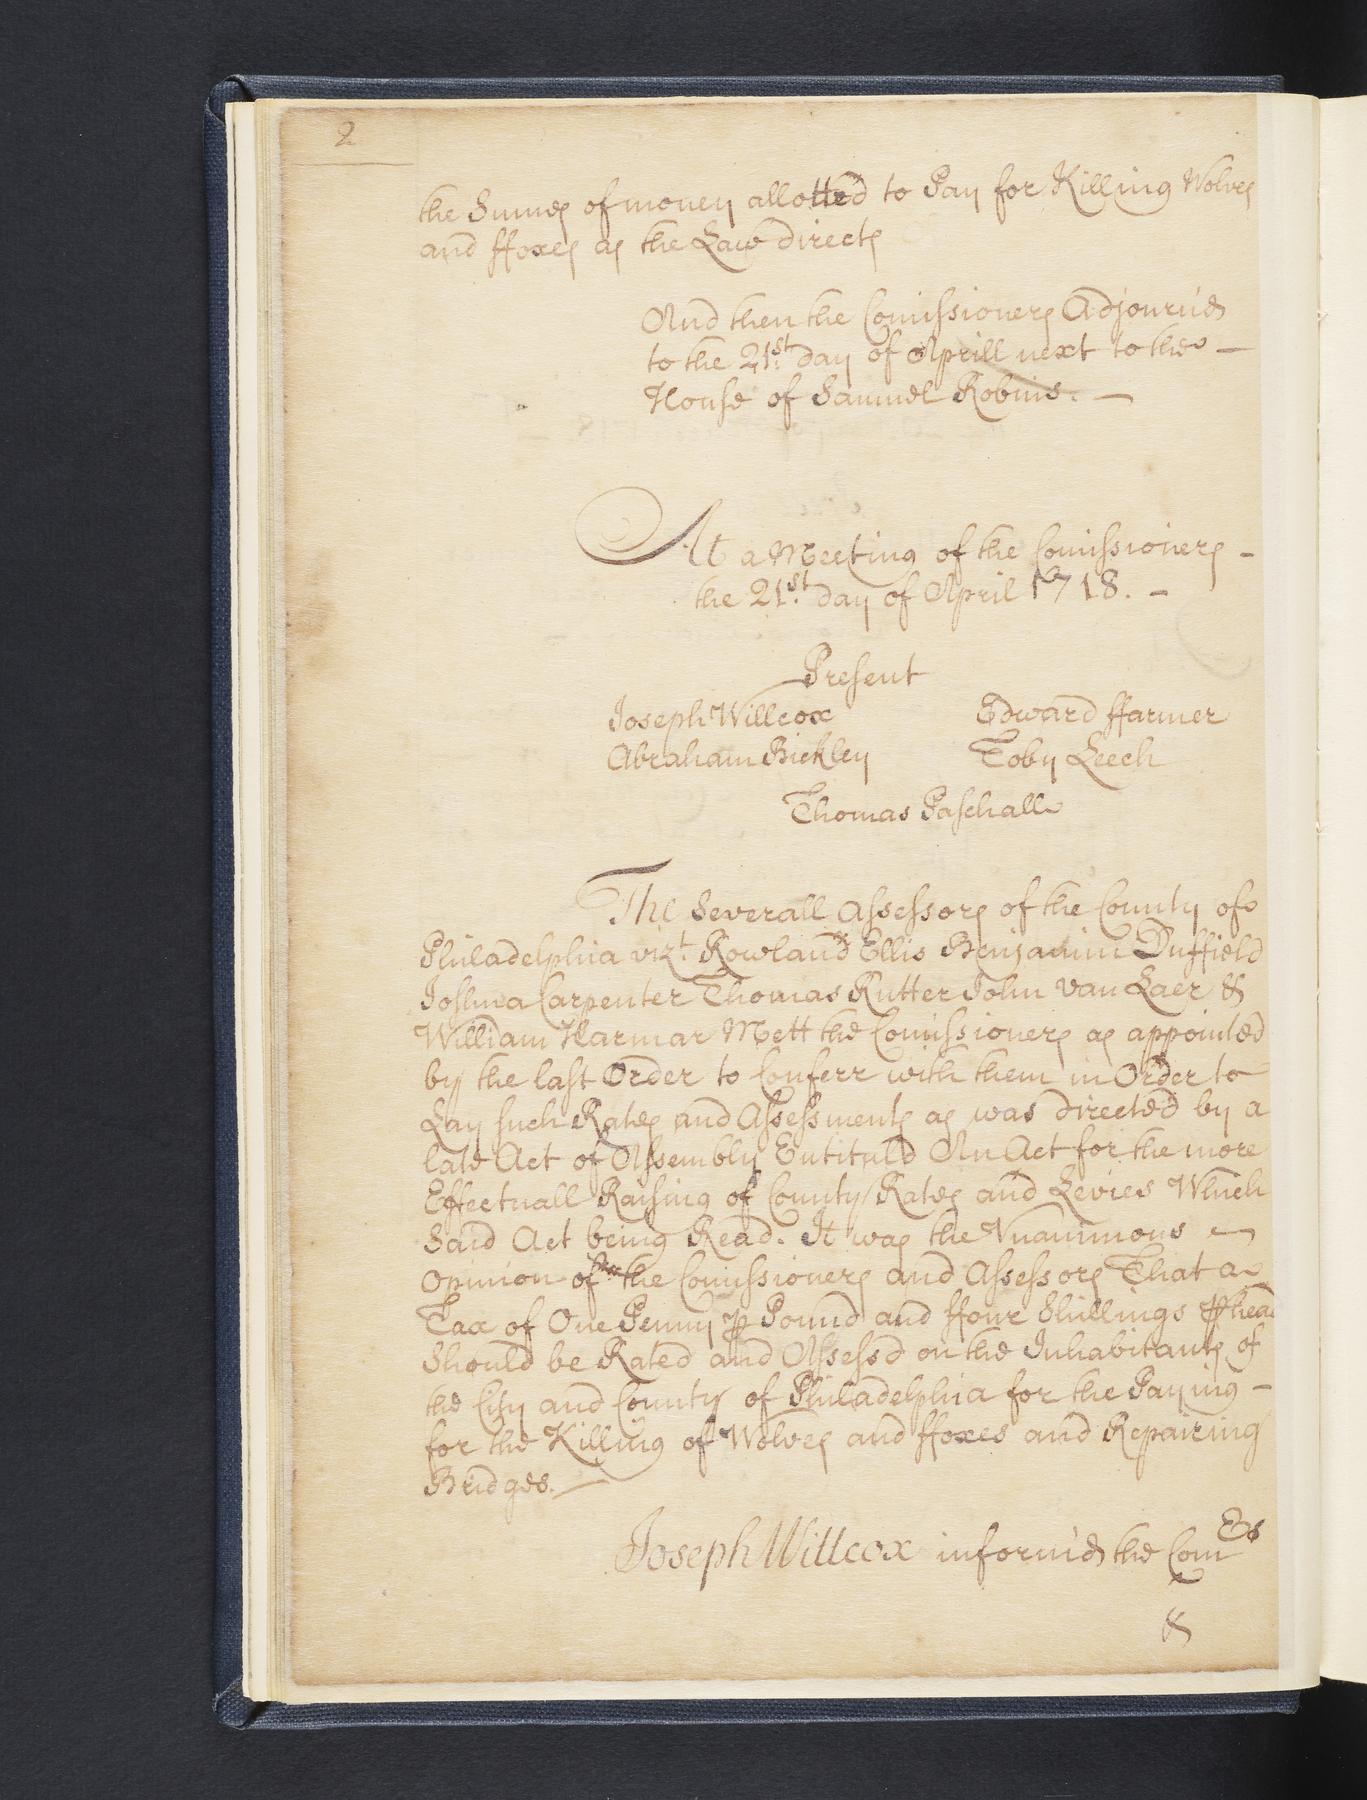 2
the Summes of money allotted to Pay for Killing Wolves
and ffoxes as the Law directs
And then the Comissioners Adjourn'd
to the 21st day of Aprill next to the
House of Samuel Robins. —
At a Meeting of the Comissioners –
the 21st day of April 1718. –
Present
Joseph Willcox Edward ffarmer
Abraham Bickley Toby Leech
Thomas Paschall
The Severall Assessors of the County of
Philadelphia vizt. Rowland Ellis Benjamin Duffield
Joshua Carpenter Thomas Rutter John Van Laer &
William Harmar Mett the Comissioners as appointed
by the last Order to Conferr with them in Order to
Lay such Rates and Assessments as was directed by a
late Act of Assembly Entituld An Act for the more
Effectuall Raising of County Rates and Levies Which
Said Act being Read. It was the Vnanimous
Opinion of the Comissioners and Assessors That a
Tax of One Penny ℘ Pound and ffour Shillings ℘ head
Should be Rated and Assessd on the Inhabitants of
the City and County of Philadelphia for the Paying –
for the Killing of Wolves and ffoxes and Repairing
Bridges. —
Joseph Willcox inform'd the Com Es
&